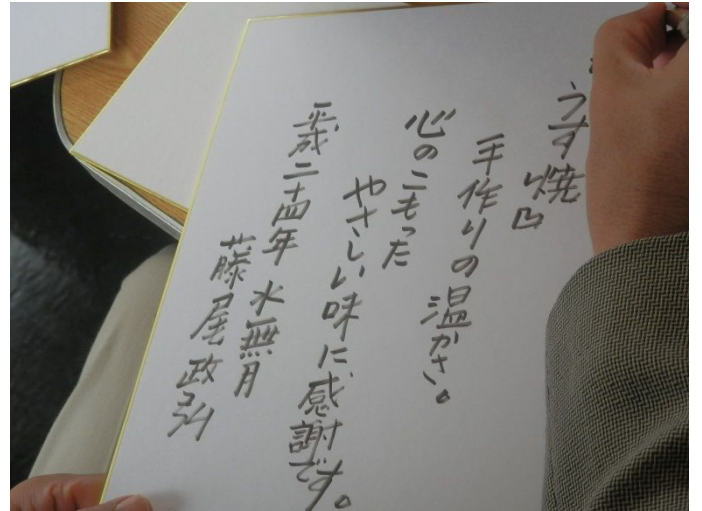 うす焼
手作りの温かさ。
心のこもった
やさしい味に感謝です。
平成二十四年 水無月
藤尾政弘